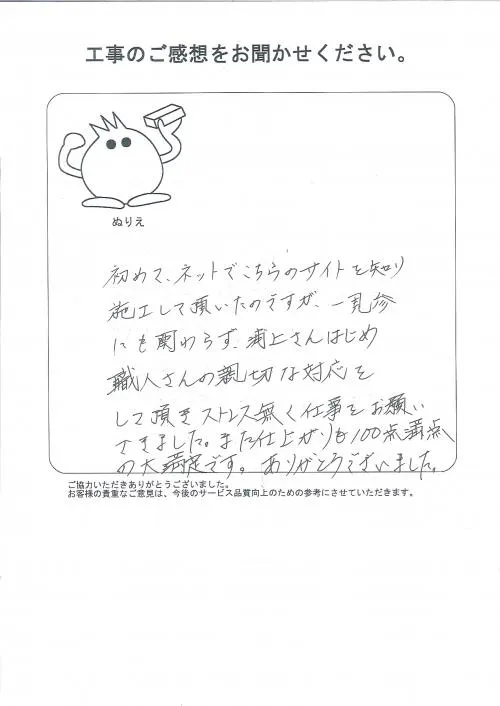 工事のご感想をお聞かせください。
ぬりえ
初めて、ネットでこちらのサイトを知り
施工して頂いたのですが、一見参
にも関わらず、浦上さんはじめ
職人さんの親切な対応を
して頂きストレス無く仕事をお願い
できました。また仕上がりも100点満点
の大満足です。ありがとうございました。
ご協力いただきありがとうございました。
お客様の貴重なご意見は、今後のサービス品質向上のための参考にさせていただきます。